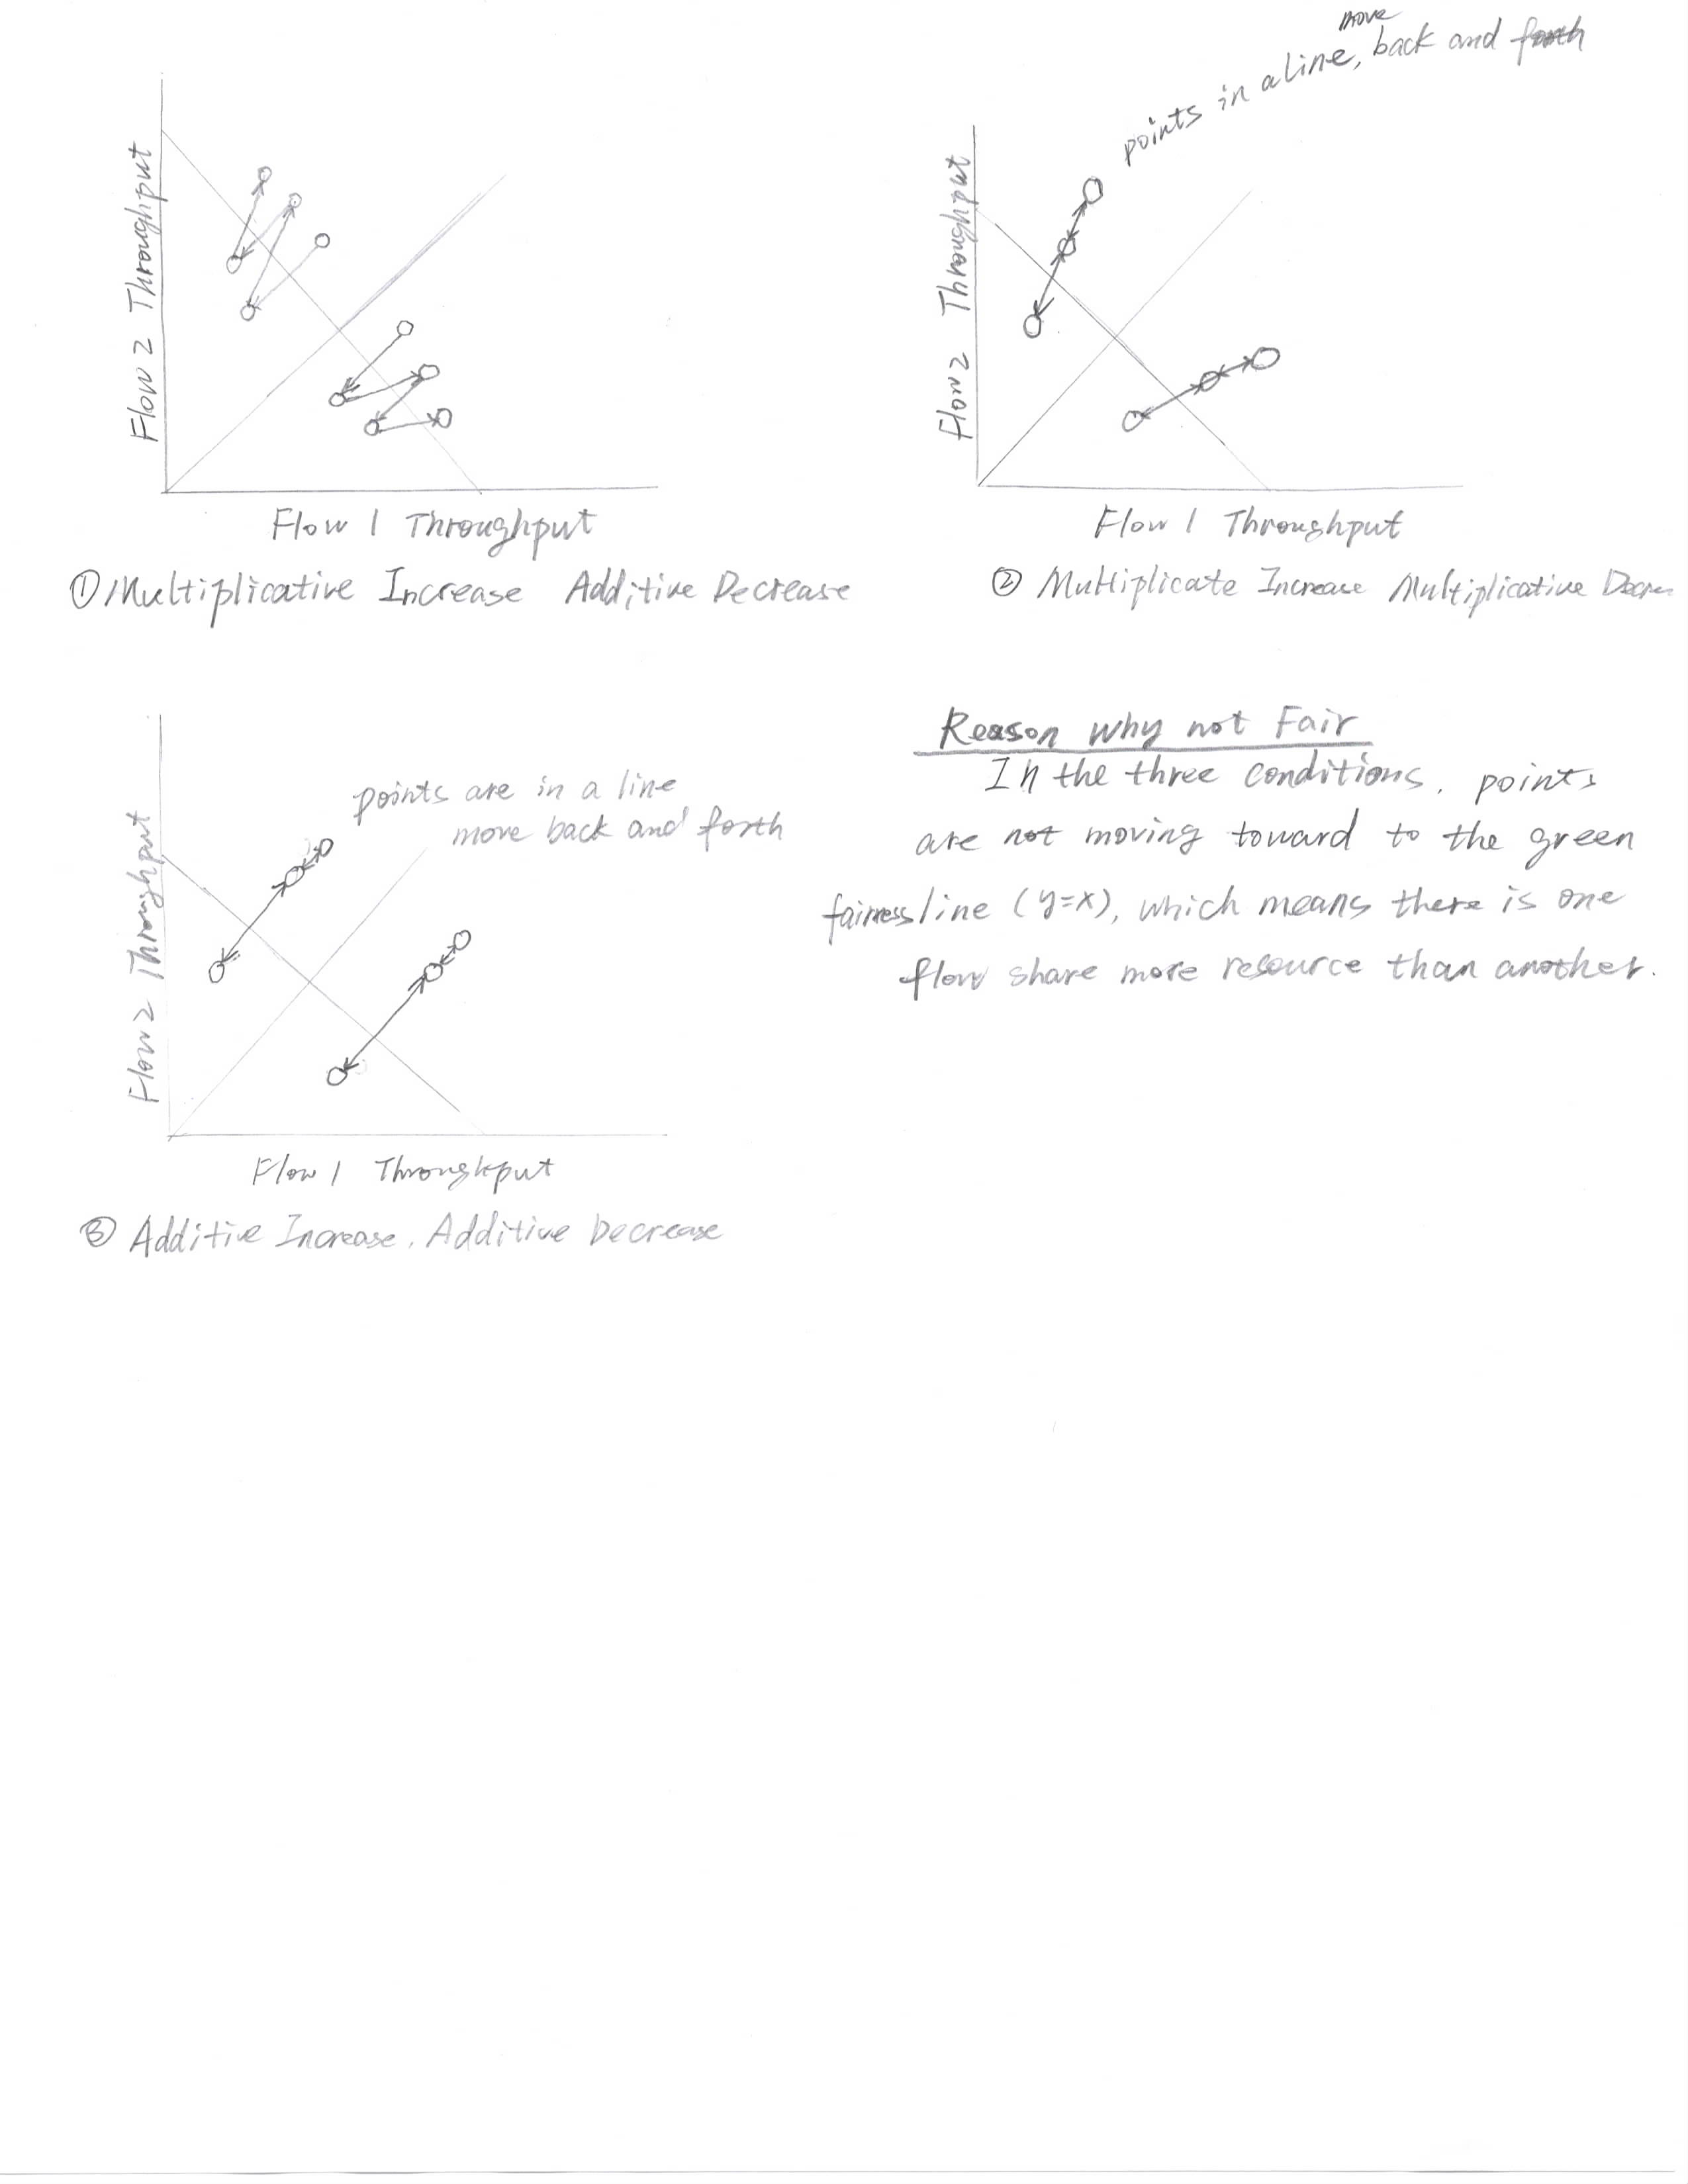 move
points in a line, back and forth
Flow 2 Throughput
Flow 1 Throughput
① Multiplicative Increase Additive Decrease
Flow 2 Throughput
Flow 1 Throughput
② Multiplicate Increase Multiplicative Decre
points are in a line
move back and forth
Flow 2 Throughput
Flow 1 Throughput
③ Additive Increase. Additive Decrease
Reason why not Fair
In the three conditions, points
are not moving toward to the green
fairness line (y=x), which means there is one
flow share more resource than another.